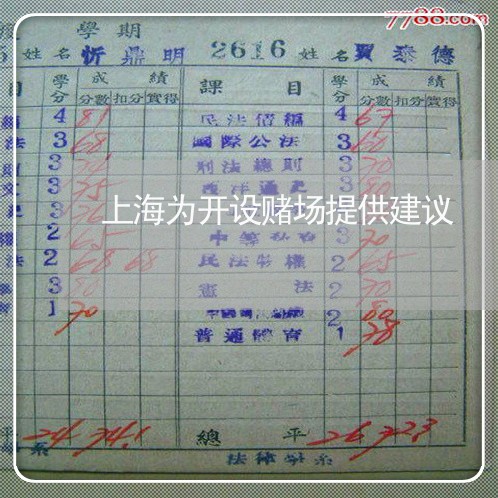 7788.com
學期
姓名 忻鼎明 2616 姓名 賈泰德
目 學分 成績 課目 學分 成績
分數 扣分 實得 分數 扣分 實得
4 81 民法債編 4 67
法 3 68 國際公法 3 60
3 刑法總則 3 70
3 75 西洋通史 3 80
上海为开设赌场提供建议
2 65 中等私有 3 70
法 2 68 68 民法物權 2 65
3 80 憲法 2 70
1 70 2 80
普通體育 1 78
平 24 74.1 總平 26 72.3
系 法律學系